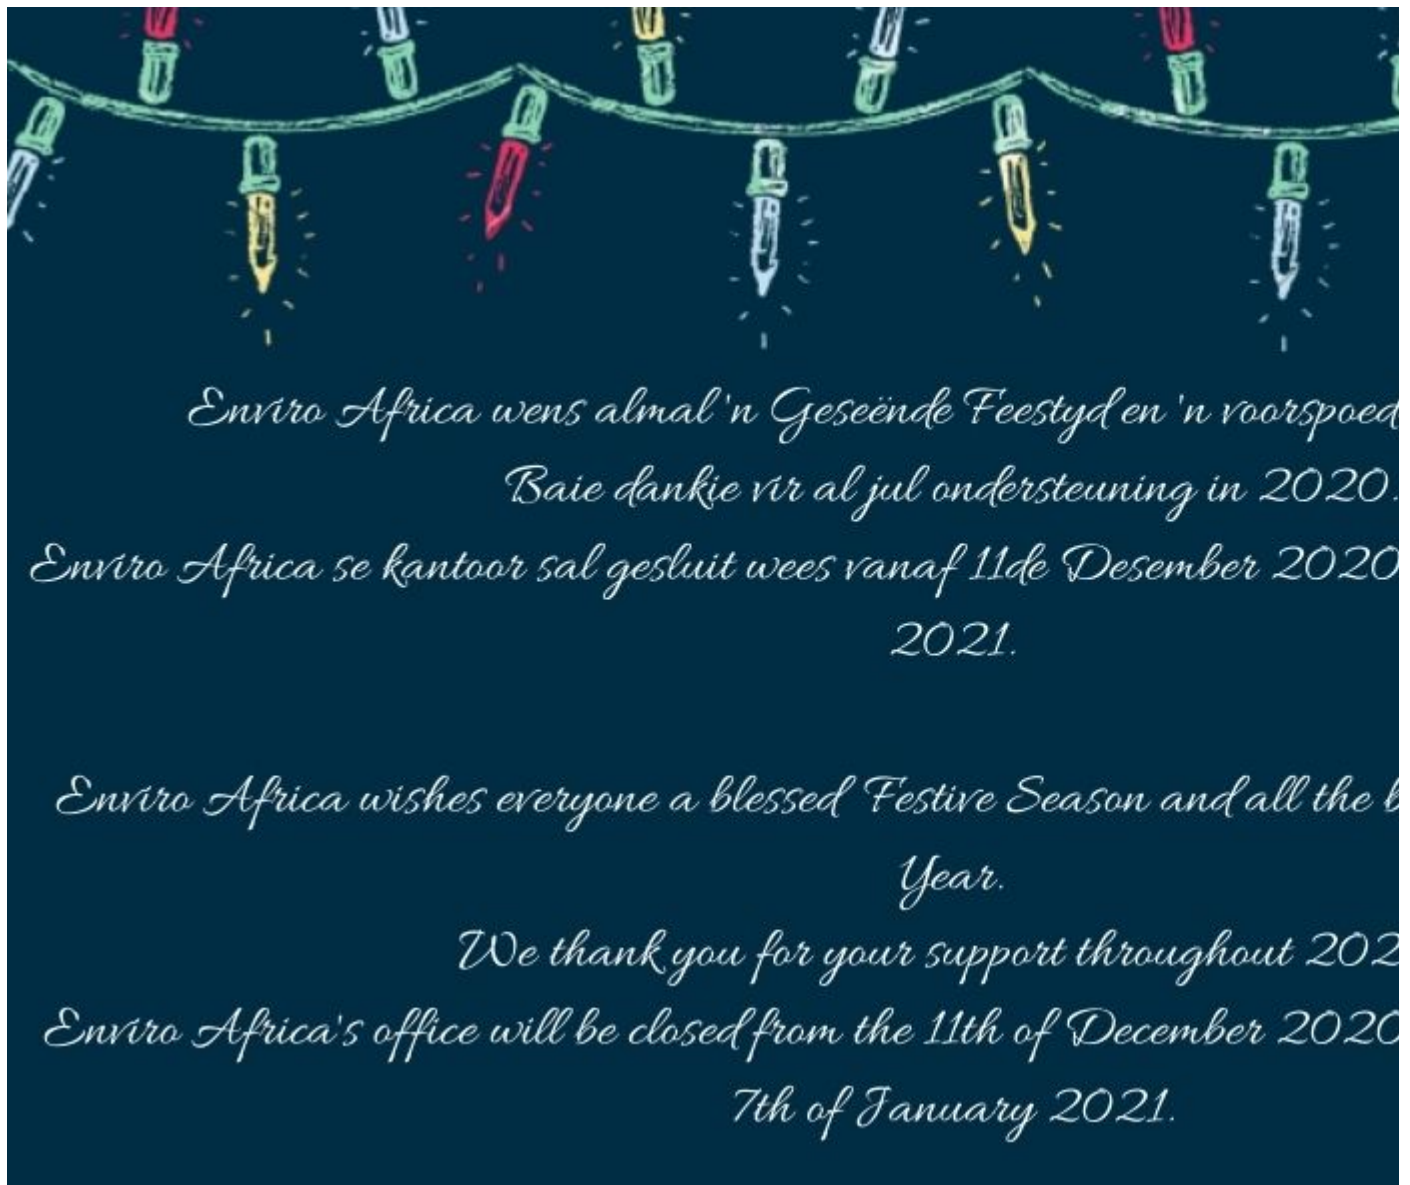 Enviro Africa wens almal 'n Geseënde Feestyd en 'n voorspoed
Baie dankie vir al jul ondersteuning in 2020.
Enviro Africa se kantoor sal gesluit wees vanaf 11de Desember 2020
2021.
Enviro Africa wishes everyone a blessed Festive Season and all the b
Year.
We thank you for your support throughout 202
Enviro Africa's office will be closed from the 11th of December 2020
7th of January 2021.